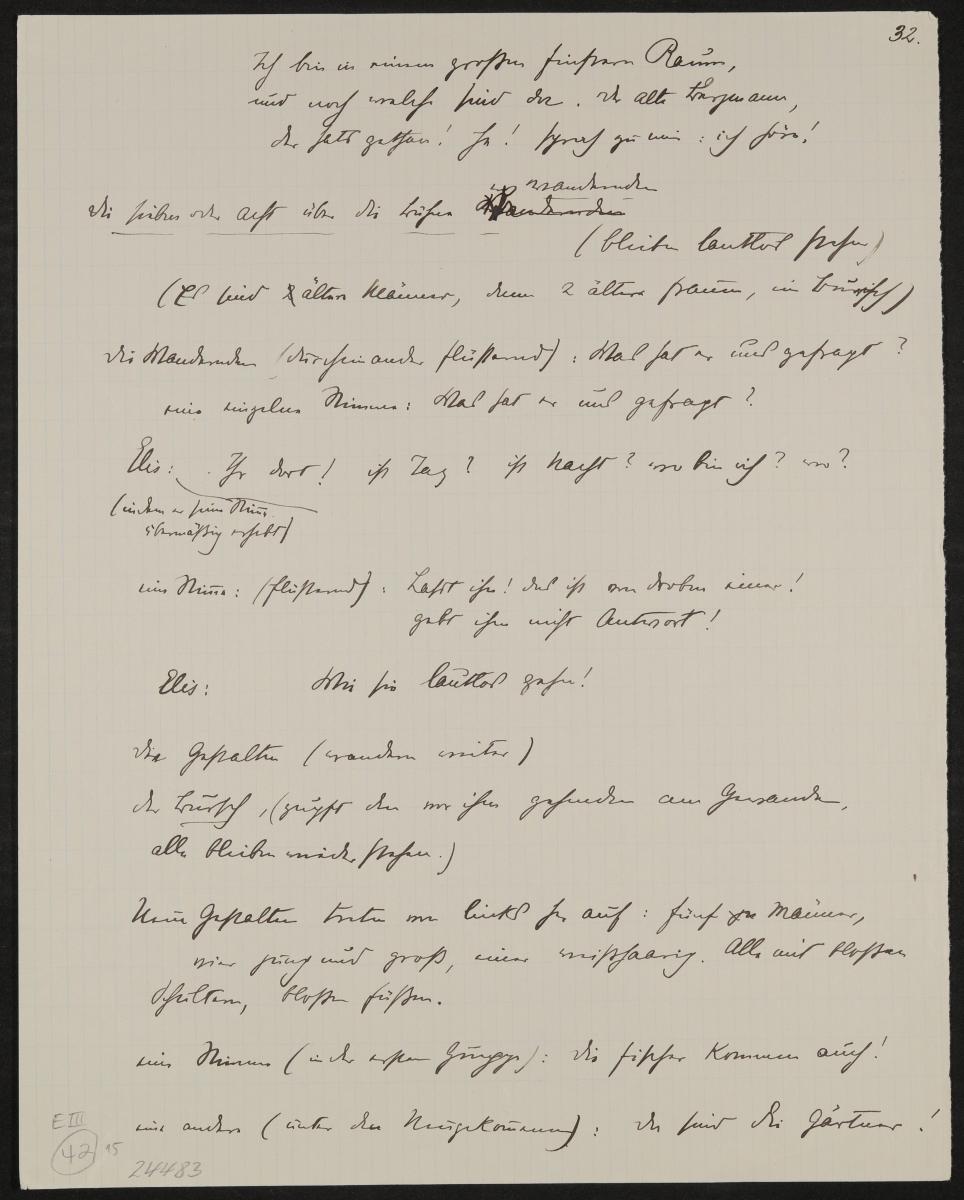 32.
Ich bin in einem großen finstern Raum,
und noch welche sind da. Der alte Bergmann,
der hats gethan! Ja! sprich zu mir: ich höre!
wandernden
die sieben oder acht über die Bühne
(bleiben lautlos stehen)
(Es sind ältere Männer, dann 2 ältere Frauen, ein Bursch)
die Wandernden (durcheinander flüsternd): Was hat er uns gefragt?
eine einzelne Stimme: Was hat er uns gefragt?
Elis: Ihr dort! ist Tag? ist Nacht? wo bin ich? wo?
(indem er seine Stimme
übermäßig erhebt)
eine Stimme: (flüsternd): Laßt ihn! das ist von droben einer!
gebt ihm nicht Antwort!
Elis: Wie sie lautlos gehn!
die Gestalten (wandern weiter)
der Bursch, (zupft den vor ihm gehenden am Gewande,
alle bleiben wieder stehen.)
Neue Gestalten treten von links her auf: fünf Männer,
vier jung und groß, einer weißhaarig. Alle mit bloßen
Schultern, bloßen Füßen.
eine Stimme (in der ersten Gruppe): die Fischer kommen auch!
eine andere (unter den Neugekommenen): da sind die Gärtner!
E III
42 15
24483